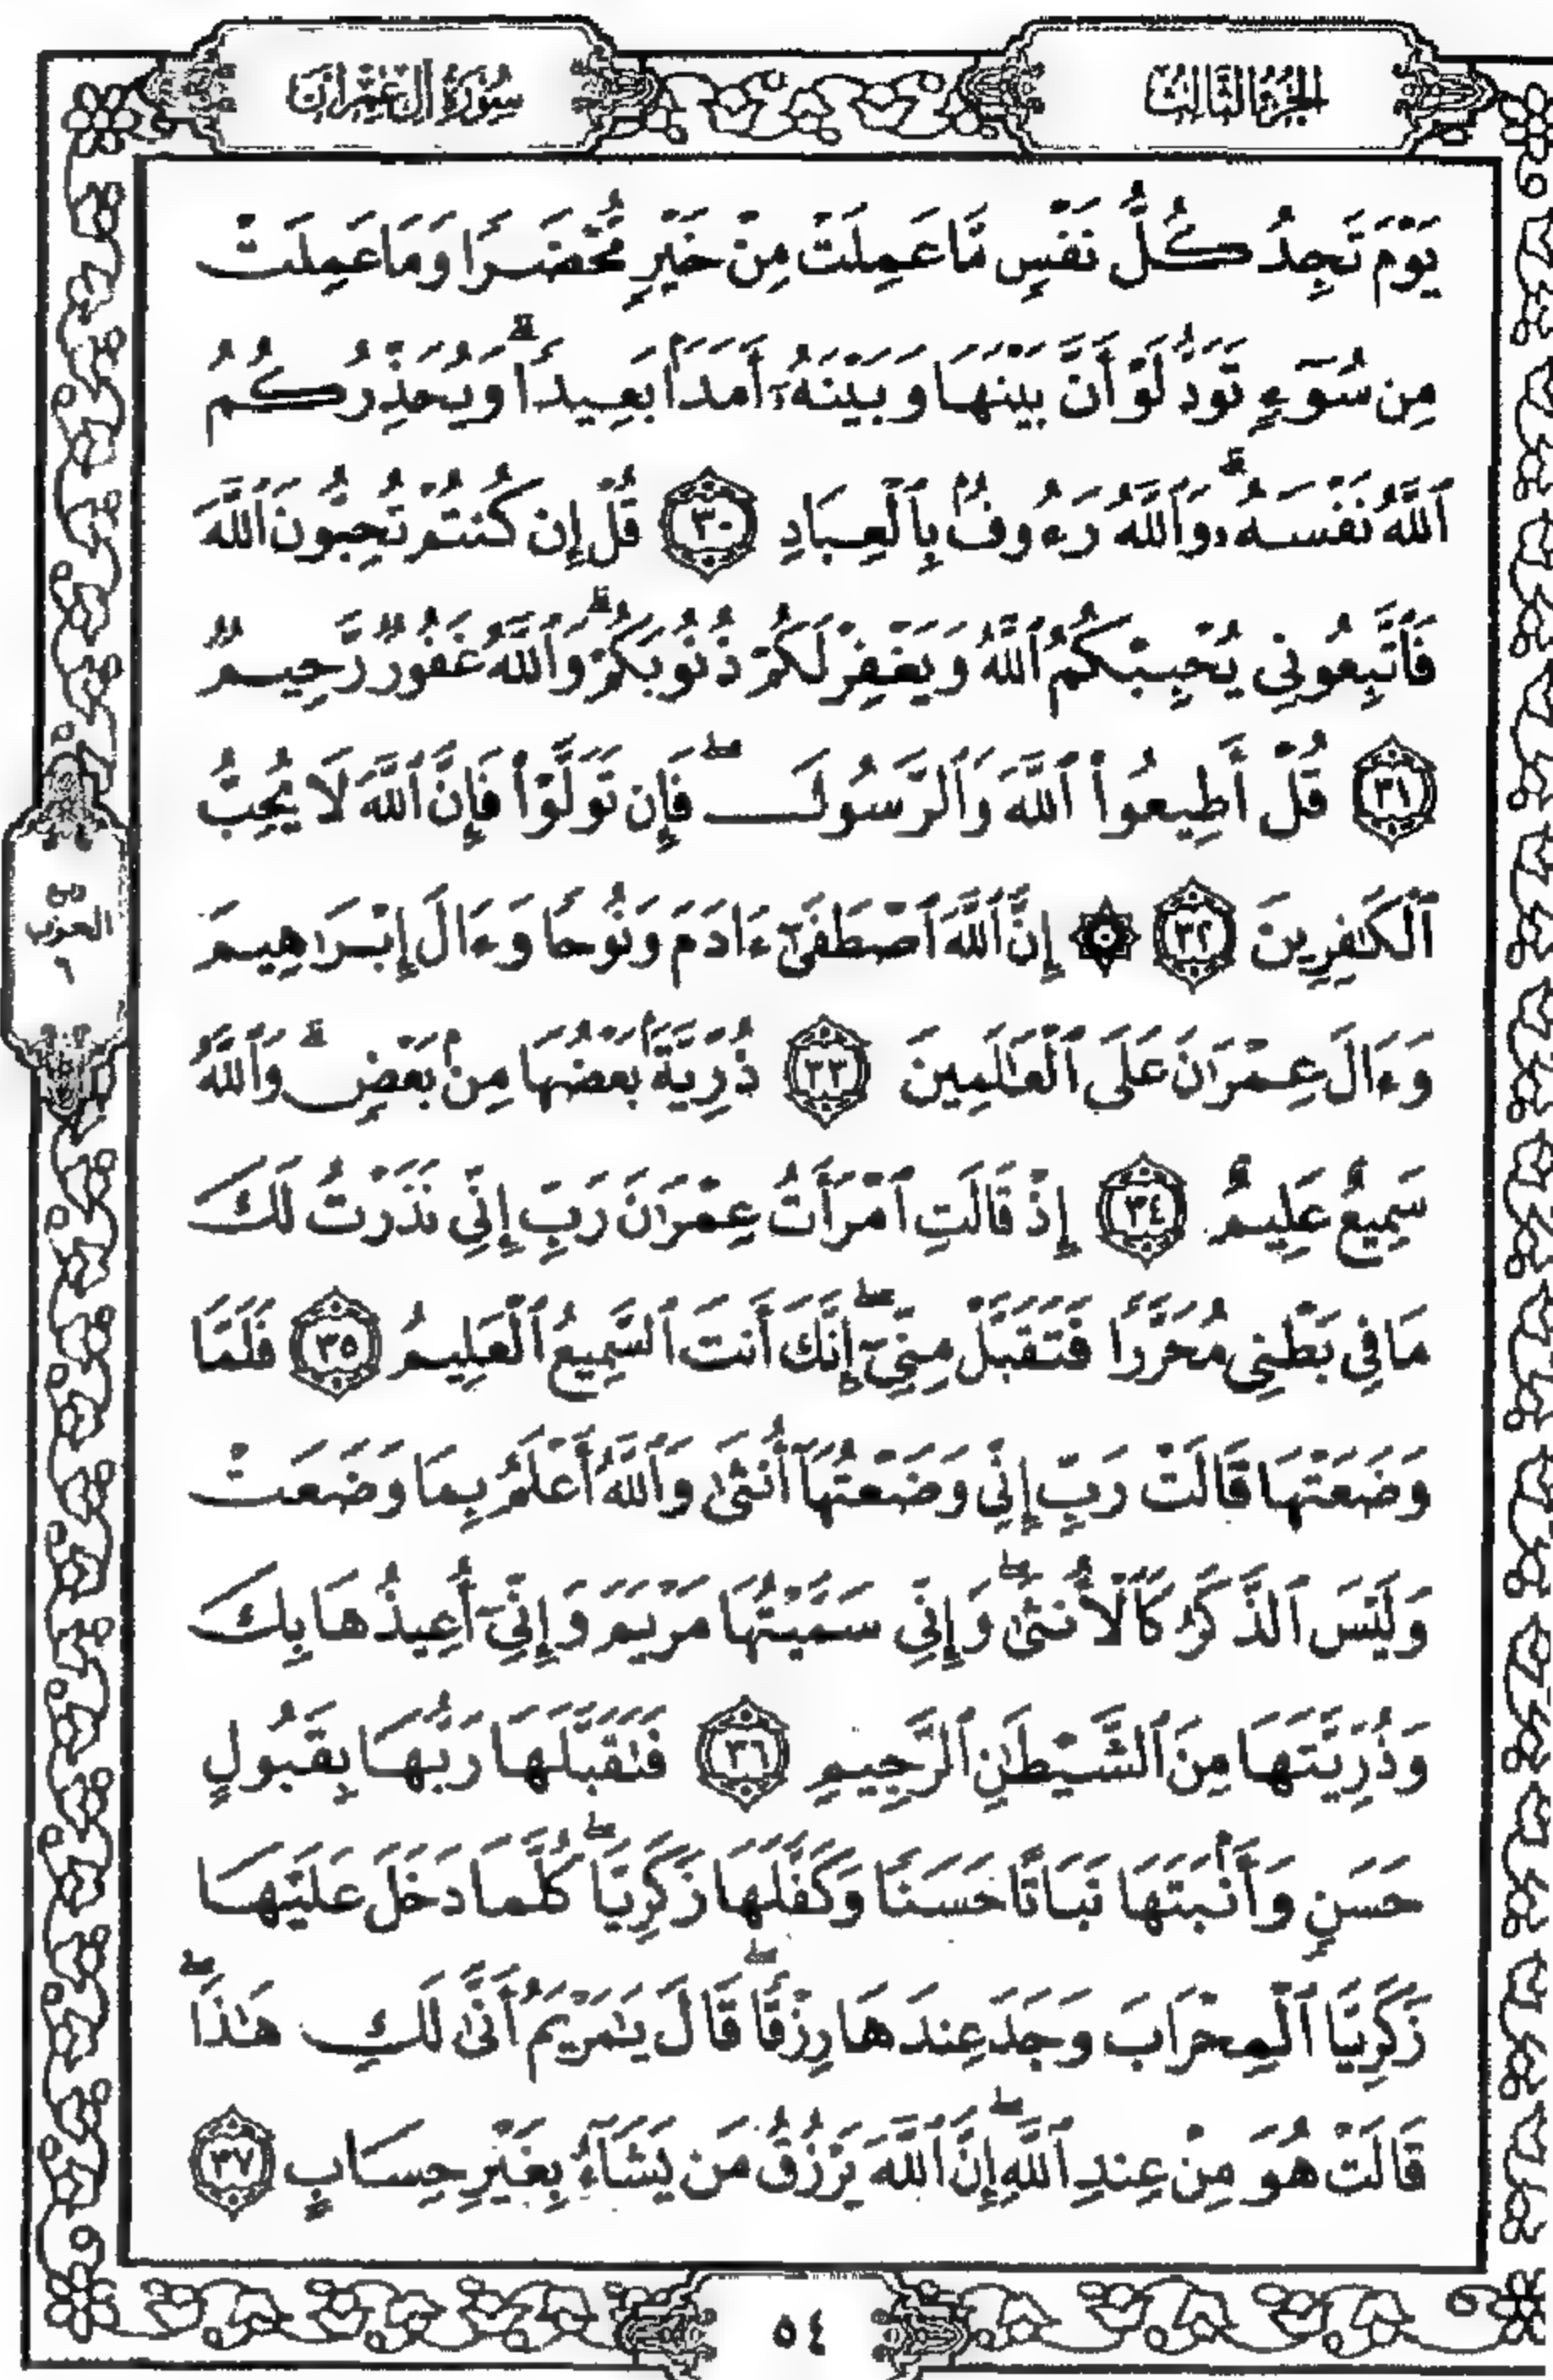 الجزء الثالث
سورة آل عمران
يَوْمَ تَجِدُ كُلُّ نَفْسٍ مَّا عَمِلَتْ مِنْ خَيْرٍ مُّحْضَرًا وَمَا عَمِلَتْ
مِن سُوٓءٍ تَوَدُّ لَوْ أَنَّ بَيْنَهَا وَبَيْنَهُۥٓ أَمَدًۢا بَعِيدًا ۗ وَيُحَذِّرُكُمُ
ٱللَّهُ نَفْسَهُۥ ۗ وَٱللَّهُ رَءُوفُۢ بِٱلْعِبَادِ ٣٠ قُلْ إِن كُنتُمْ تُحِبُّونَ ٱللَّهَ
فَٱتَّبِعُونِى يُحْبِبْكُمُ ٱللَّهُ وَيَغْفِرْ لَكُمْ ذُنُوبَكُمْ ۗ وَٱللَّهُ غَفُورٌ رَّحِيمٌ
٣١ قُلْ أَطِيعُوا۟ ٱللَّهَ وَٱلرَّسُولَ ۖ فَإِن تَوَلَّوْا۟ فَإِنَّ ٱللَّهَ لَا يُحِبُّ
ٱلْكَـٰفِرِينَ ٣٢ ۞ إِنَّ ٱللَّهَ ٱصْطَفَىٰٓ ءَادَمَ وَنُوحًا وَءَالَ إِبْرَٰهِيمَ
وَءَالَ عِمْرَٰنَ عَلَى ٱلْعَـٰلَمِينَ ٣٣ ذُرِّيَّةًۢ بَعْضُهَا مِنۢ بَعْضٍ ۗ وَٱللَّهُ
سَمِيعٌ عَلِيمٌ ٣٤ إِذْ قَالَتِ ٱمْرَأَتُ عِمْرَٰنَ رَبِّ إِنِّى نَذَرْتُ لَكَ
مَا فِى بَطْنِى مُحَرَّرًا فَتَقَبَّلْ مِنِّىٓ ۖ إِنَّكَ أَنتَ ٱلسَّمِيعُ ٱلْعَلِيمُ ٣٥ فَلَمَّا
وَضَعَتْهَا قَالَتْ رَبِّ إِنِّى وَضَعْتُهَآ أُنثَىٰ وَٱللَّهُ أَعْلَمُ بِمَا وَضَعَتْ
وَلَيْسَ ٱلذَّكَرُ كَٱلْأُنثَىٰ ۖ وَإِنِّى سَمَّيْتُهَا مَرْيَمَ وَإِنِّىٓ أُعِيذُهَا بِكَ
وَذُرِّيَّتَهَا مِنَ ٱلشَّيْطَـٰنِ ٱلرَّجِيمِ ٣٦ فَتَقَبَّلَهَا رَبُّهَا بِقَبُولٍ
حَسَنٍ وَأَنۢبَتَهَا نَبَاتًا حَسَنًا وَكَفَّلَهَا زَكَرِيَّا ۖ كُلَّمَا دَخَلَ عَلَيْهَا
زَكَرِيَّا ٱلْمِحْرَابَ وَجَدَ عِندَهَا رِزْقًا ۖ قَالَ يَـٰمَرْيَمُ أَنَّىٰ لَكِ هَـٰذَا ۖ
قَالَتْ هُوَ مِنْ عِندِ ٱللَّهِ ۖ إِنَّ ٱللَّهَ يَرْزُقُ مَن يَشَآءُ بِغَيْرِ حِسَابٍ ٣٧
ربع
الحزب
٦
٥٤